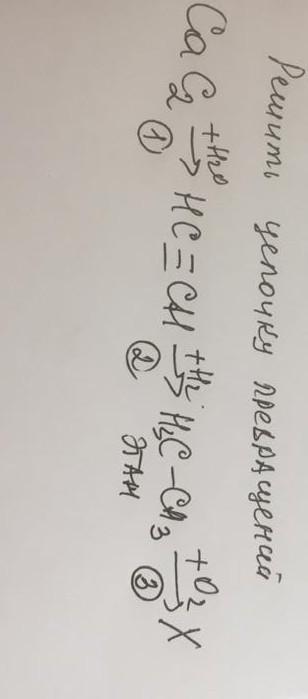 Решить цепочку превращений
CaC₂ +H₂O → HC≡CH +H₂ → H₃C-CH₃ +O₂ → X
① ② этан ③